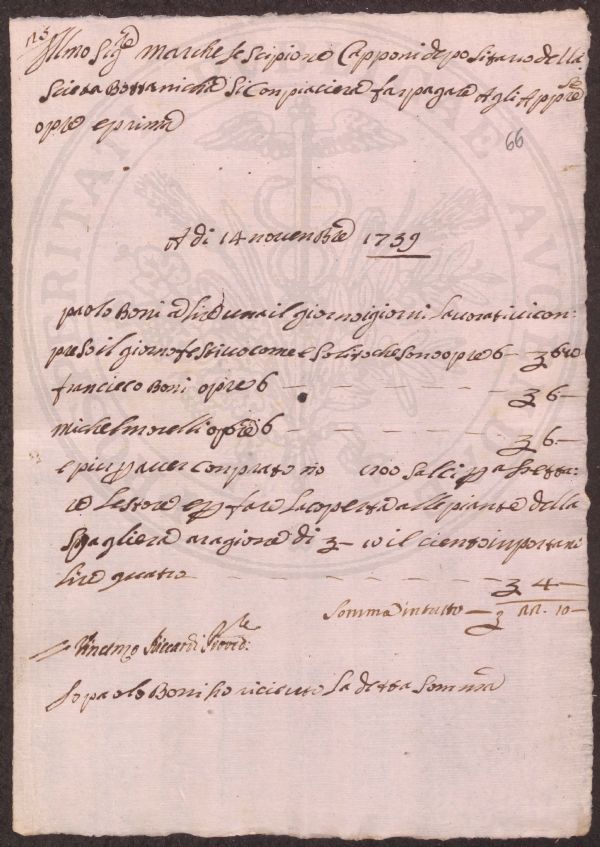 Illmo Sig.re Marchese Scipione Capponi depositario della
Scieta Bottanicha Si Conpiacera far pagare Agli Appre
opre e prima
66
A di 14 novenbre 1739
paolo Boni a lire una il giorno i giorni lavorativi con:
preso il giorno festivo come e Solito che sono opre 6
francieco Boni opre 6 — — — — — 3 6 —
Michel morelli opre 6 — — — — — 3 6 —
e piu p aver Conprato no Salci p a
re le store e p fare la coperta alle piante della
Spagliera a ragione di il ciento inportani
lire quatro — — — — — 3 4 —
Somma in tutto —
Vincenzo Riccardi Proved:re
Io paolo Boni ho riceuto la detta Somma